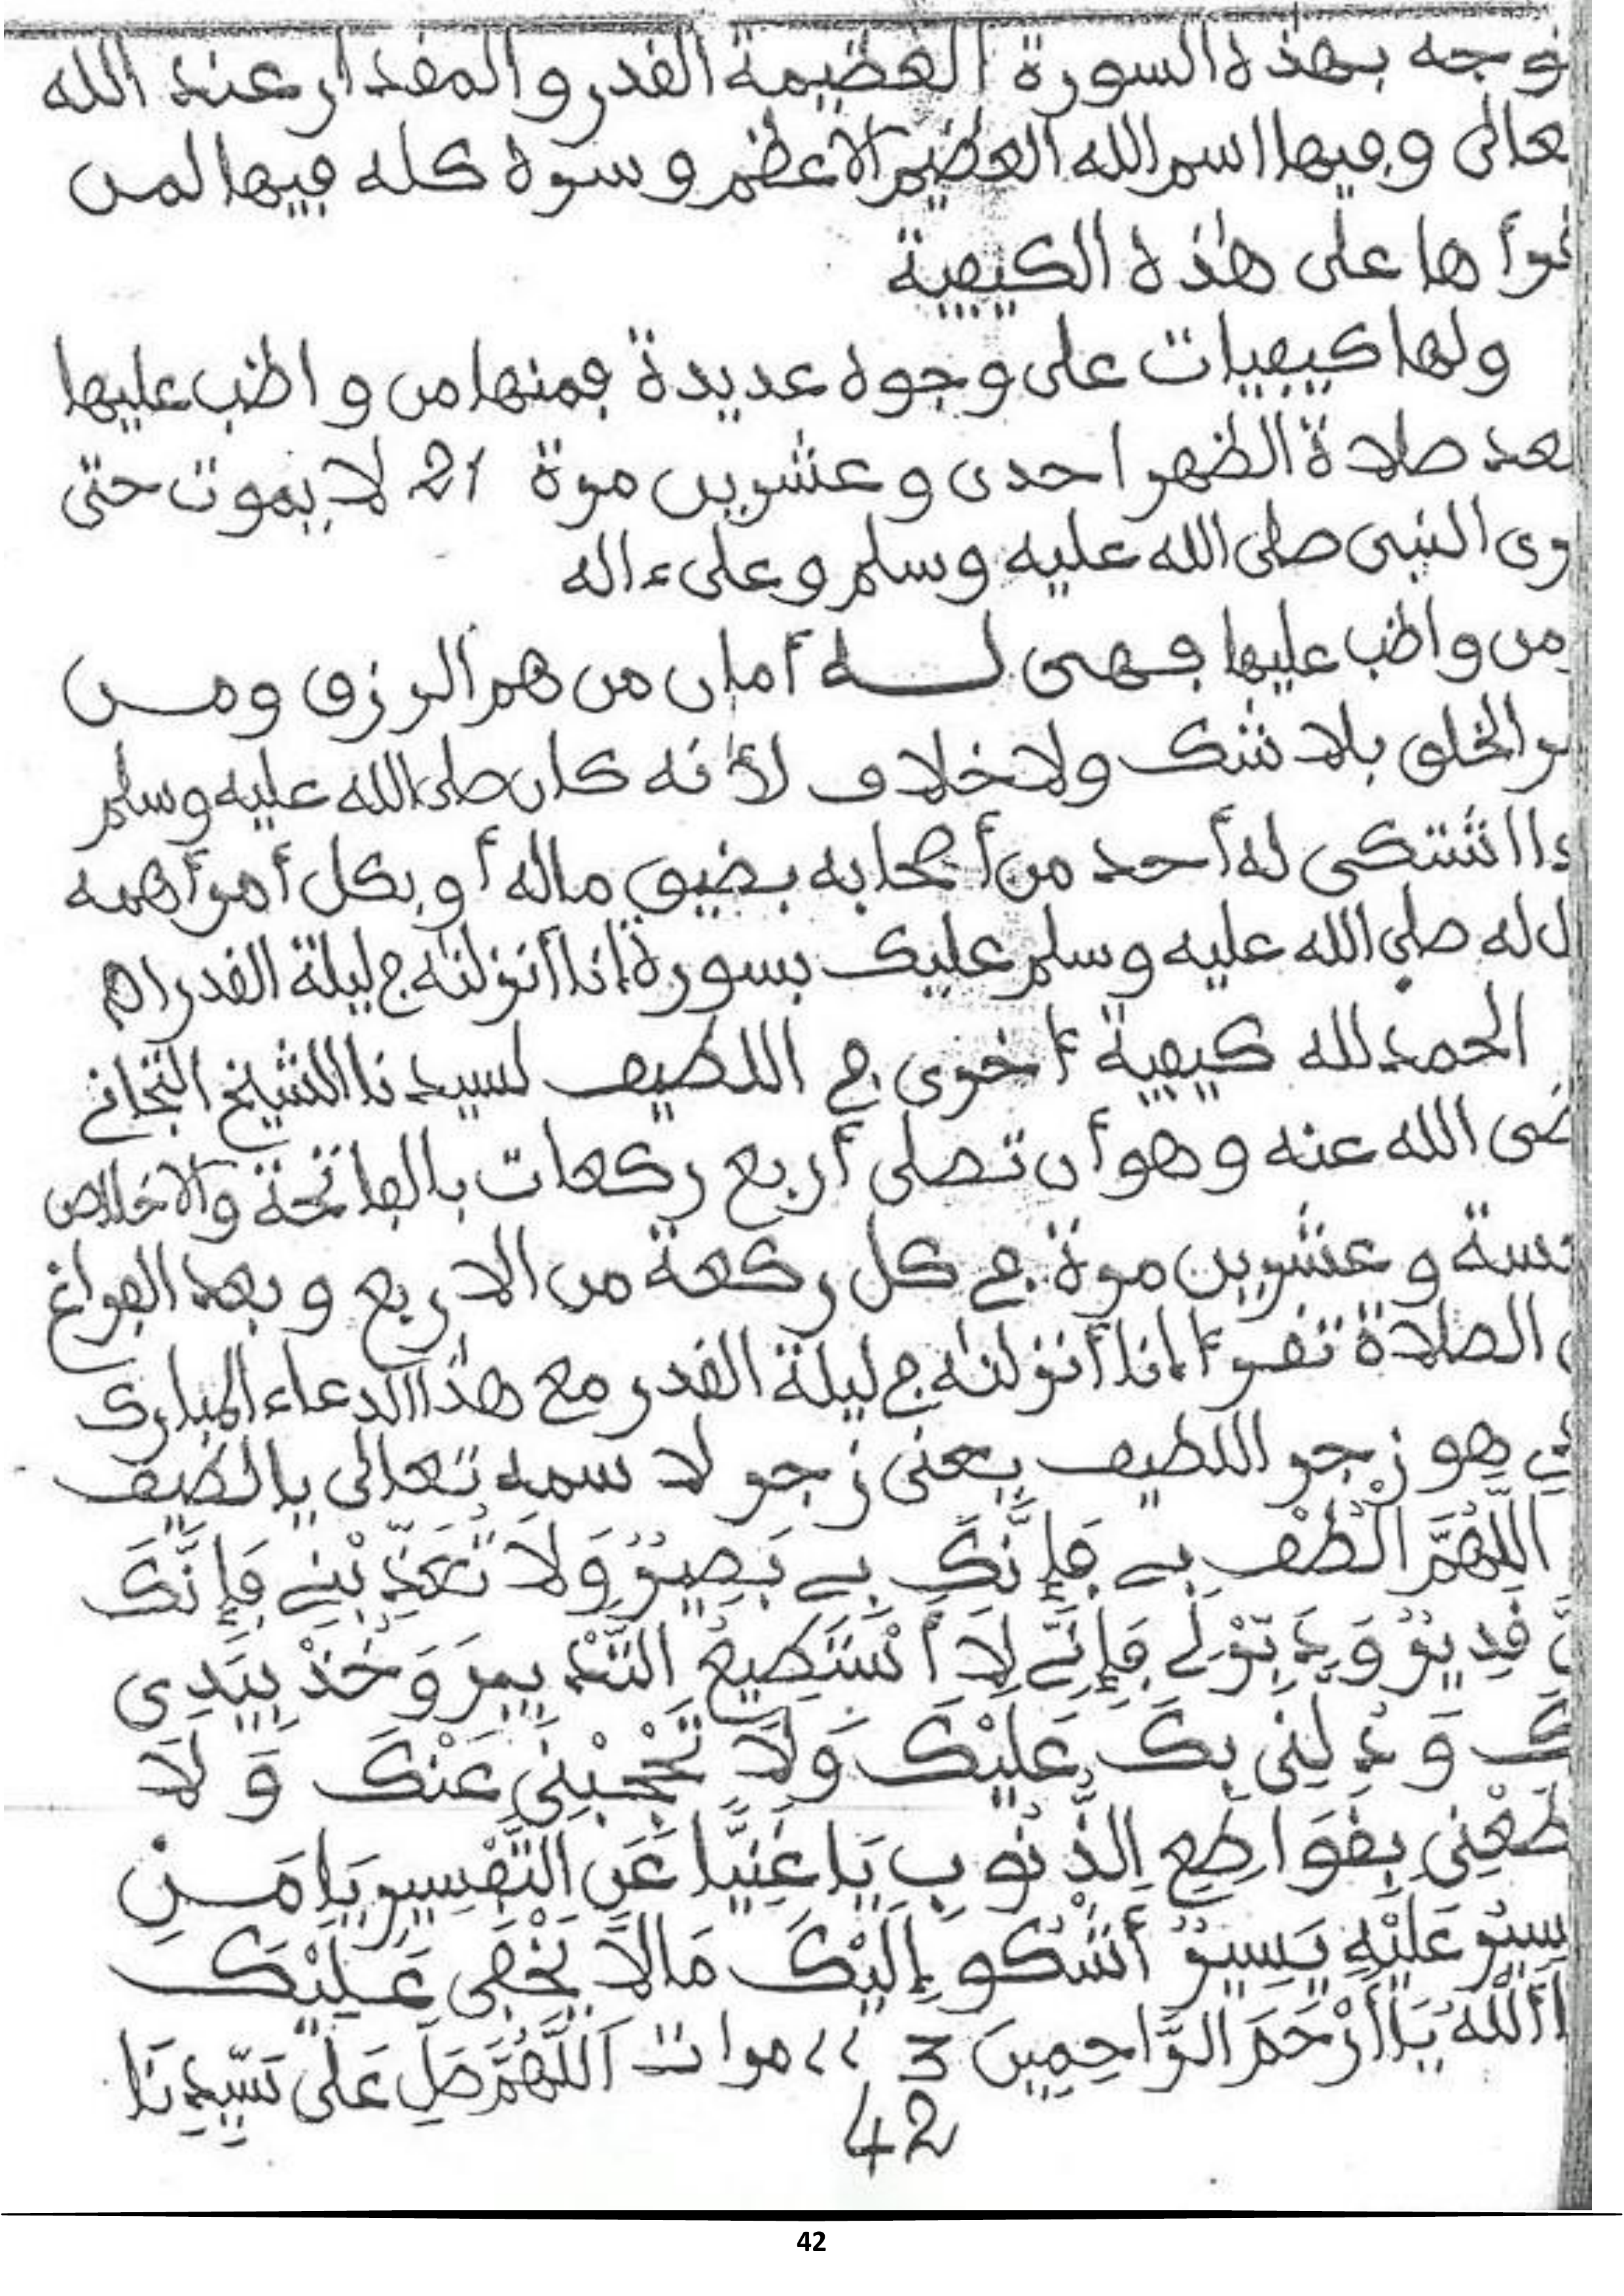 توجه بهذه السورة العظيمة القدر والمقدار عند الله
تعالى وفيها اسم الله العظيم الاعظم وسره كله فيها لمن
قرأها على هذه الكيفية
ولها كيفيات على وجوه عديدة فمنها من واظب عليها
بعد صلاة الظهر احدى وعشرين مرة 21 لا يموت حتى
يرى النبى صلى الله عليه وسلم وعلى ءاله
ومن واظب عليها فهى له أمان من هم الرزق ومن
الخلق بلا شك ولا خلاف لأنه كان صلى الله عليه وسلم
اذا اشتكى له أحد من أصحابه بضيق ماله أو بكل أمر أهمه
قال له صلى الله عليه وسلم عليك بسورة إنا أنزلنه في ليلة القدر اه
الحمد لله كيفية أخرى في اللطيف لسيدنا الشيخ التجاني
رضى الله عنه وهو أن تصلى أربع ركعات بالفاتحة والاخلاص
خمسة وعشرين مرة في كل ركعة من الاربع وبعد الفراغ
الصلاة تقرأ إنا أنزلنه في ليلة القدر مع هذا الدعاء المبارك
هو زجر اللطيف يعنى زجر لاسمه تعالى يا لطيف
اللَّهُمَّ الْطُفْ بِي فَإِنَّكَ بِي بَصِيرٌ وَلَا تُعَذِّبْنِي فَإِنَّكَ
قَدِيرٌ وَدَبِّرْ لِي فَإِنِّي لَا أَسْتَطِيعُ التَّدْبِيرَ وَخُذْ بِيَدِى
وَدُلَّنِى بِكَ عَلَيْكَ وَلَا تَحْجُبْنِى عَنْكَ وَلَا
تَقْطَعْنِى بِقَوَاطِعِ الذُّنُوبِ يَا غَنِيًّا عَنِ التَّفْسِيرِ يَا مَنِ
عَلَيْهِ يَسِيرٌ أَشْكُو إِلَيْكَ مَالَا يَخْفَى عَلَيْكَ
اَللَّهُ يَا أَرْحَمَ الرَّاحِمِينَ 3 // مرات اَللَّهُمَّ صَلِ عَلَى سَيِّدِنَا
42
42